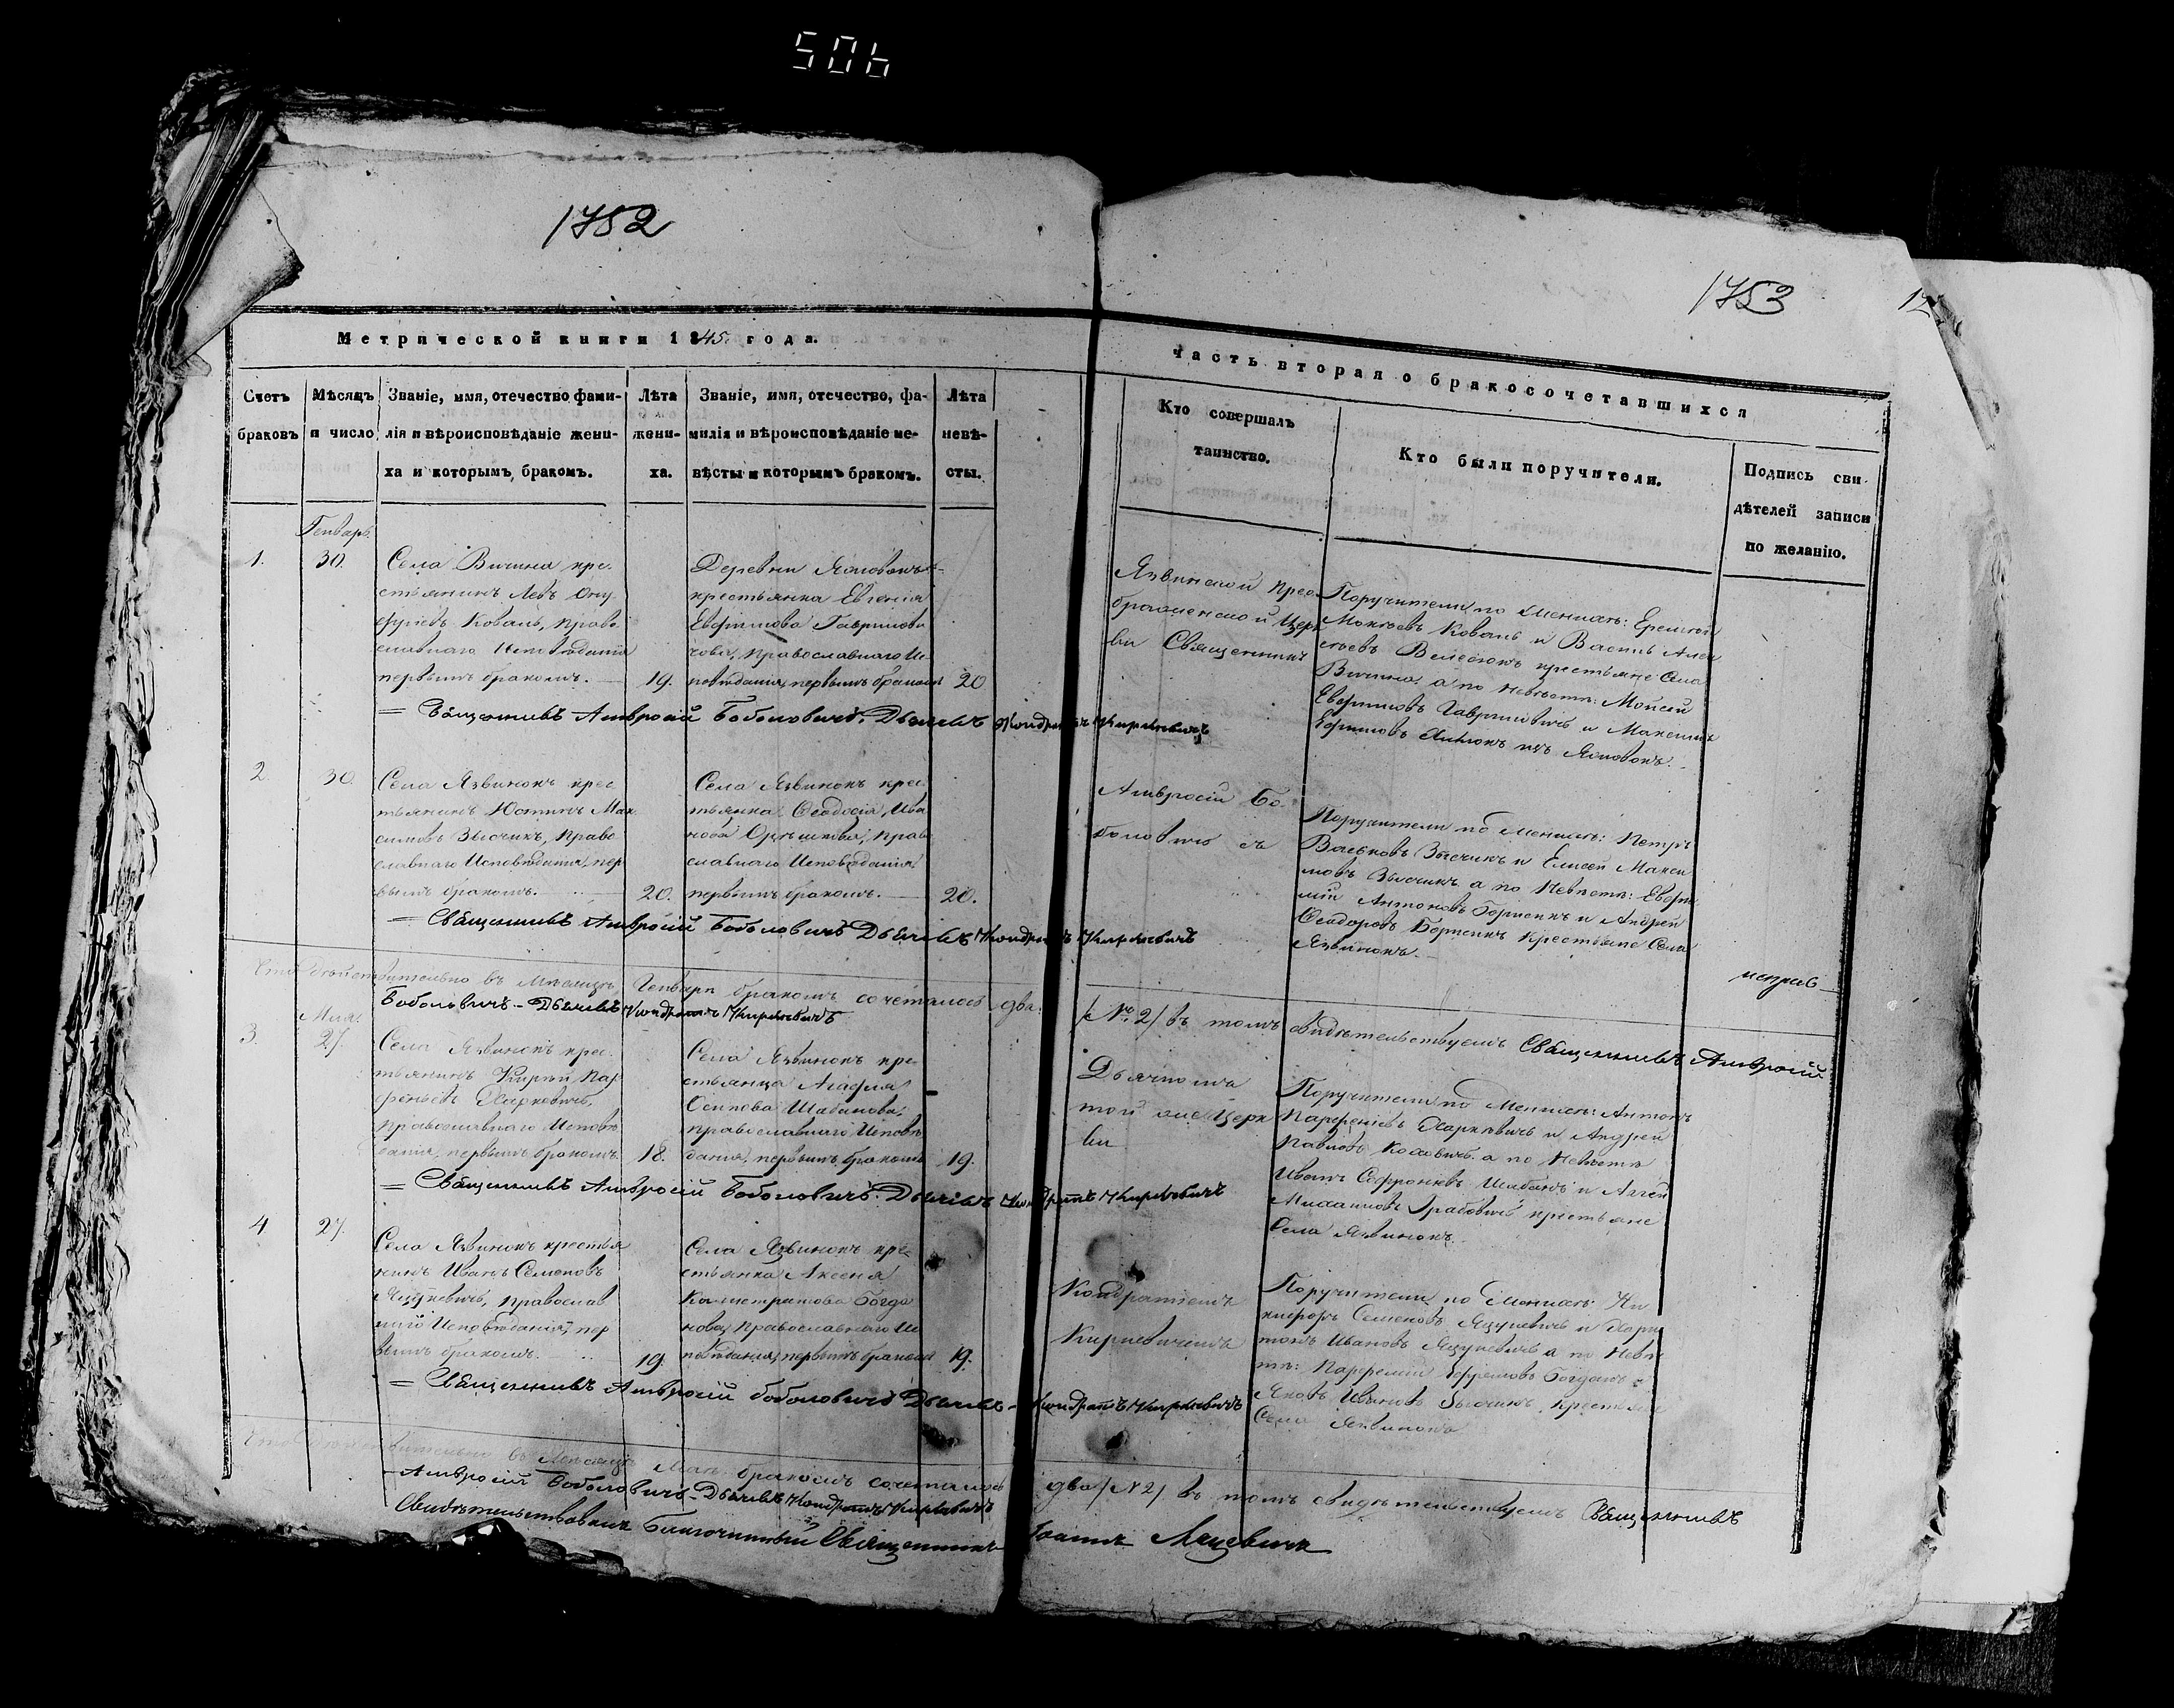 506
1752
1753
12
Метрической книги 1845. года.
часть вторая о бракосочетавшихся
Счетъ браковъ
Мѣсяцъ и число
Званіе, имя, отечество фами-
лія и вѣроисповѣданіе жени-
ха и которымъ бракомъ.
Лѣта
жени-
ха.
Званіе, имя, отечество, фа-
милія и вѣроисповѣданіе не-
вѣсты и которымъ бракомъ.
Лѣта
невѣ-
сты.
Кто совершалъ
таинство.
Кто были поручители.
Подпись сви-
дѣтелей записи
по желанію.
Генварь.
1.
30.
Села Вичина кре-
стьянинъ Левъ Ону
фріевъ Коваль, право
славнаго Исповѣданія
первымъ бракомъ.
19.
Деревни
крестьянка Евгенія
Евфимова
православнаго Ис-
повѣданія, первымъ бракомъ
20
Язвинской Прео
браженской Церк
ви Священникъ
Поручители по Женихѣ: Еремей
Коваль и Василь Алек
крестьяне Села
Вичина, а по Невѣстѣ: Моисей
Евфимовъ Гавриловичъ и Максимъ
Ефимовъ
Священникъ Амвросій Боболовичъ. Дьячекъ Кондратъ Киркевичъ
2.
30.
Села Язвинокъ крес
тьянинъ Юстинъ Мак
симовъ Зысчикъ, Право
славнаго Исповѣданія, пер
вымъ бракомъ.
20.
Села Язвинокъ крес
тьянка Ѳеодосія Ива
нова Орѣшкова, Право
славнаго Исповѣданія
первымъ бракомъ.
20.
Амвросій Бо-
боловичъ съ
Поручители по Женихѣ: Петръ
Зысчикъ и Елисей Макси
мовъ Зысчикъ а по Невѣстѣ: Евфи
мій Антоновъ и Андрей
Ѳеодоровъ Крестьяне Села
Язвинокъ.
Священникъ Амвросій Боболовичъ Дьячекъ Кондратъ Киркевичъ
Что дѣйствительно въ Мѣсяцѣ Генварѣ бракомъ сочеталось два
/№ 2/ въ томъ свидѣтельствуемъ Священникъ Амвросій
Боболовичъ - Дьячекъ Кондратъ Киркевичъ
Мая.
3.
27.
Села Язвинокъ крес-
тьянинъ Кирей Пар
феньевъ Харковичъ,
Православнаго Исповѣ
данія, первымъ бракомъ
18.
Села Язвинокъ кре-
стьянка Агафія
Осипова Шабанова,
православнаго Исповѣ
данія, первымъ бракомъ
19.
Дьячкомъ
той же Церк
ви
Поручители по Женихѣ: Антонъ
Парфеніевъ Харковичъ и Андрей
Павловъ а по Невѣстѣ
Иванъ Софроніевъ Шабанъ и
Михаиловъ Грабовичъ крестьяне
Села Язвинокъ.
Священникъ Амвросій Боболовичъ. Дьячекъ Кондратъ Киркевичъ
4
27.
Села Язвинокъ крестья
нинъ Иванъ Семеновъ
Яцукевичъ, Православ
наго Исповѣданія, пер
вымъ бракомъ.
19.
Села Язвинокъ кре-
стьянка Аксенія
Калистратова Богда
нова, Православнаго Ис
повѣданія, первымъ бракомъ
19.
Кондратіемъ
Киркевичемъ
Поручители по Женихѣ: Ни
кифоръ Семеновъ Яцукевичъ и Хари
тонъ Ивановъ Яцукевичъ а по Невѣс
тѣ: Парфеній Ефремовъ Богданъ и
Яковъ Ивановъ Зысчикъ Крестьяне
Села Язвинокъ
Священникъ Амвросій Боболовичъ Дьячекъ - Кондратъ Киркевичъ
Что дѣйствительно въ Мѣсяцѣ Маѣ бракомъ сочеталось два /№ 2/ въ томъ свидѣтельствуемъ Священникъ
Амвросій Боболовичъ - Дьячекъ Кондратъ Киркевичъ
Свидѣтельствовалъ Благочинный Священникъ Іоаннъ Ляцевичъ